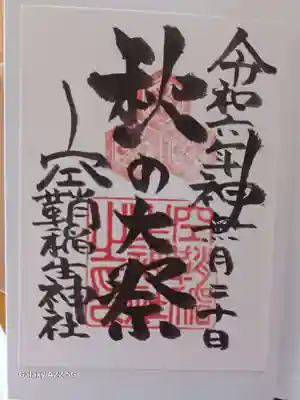 令和六年神無月二十日
秋の大祭
空鞘稲生神社
Galaxy A22 5G